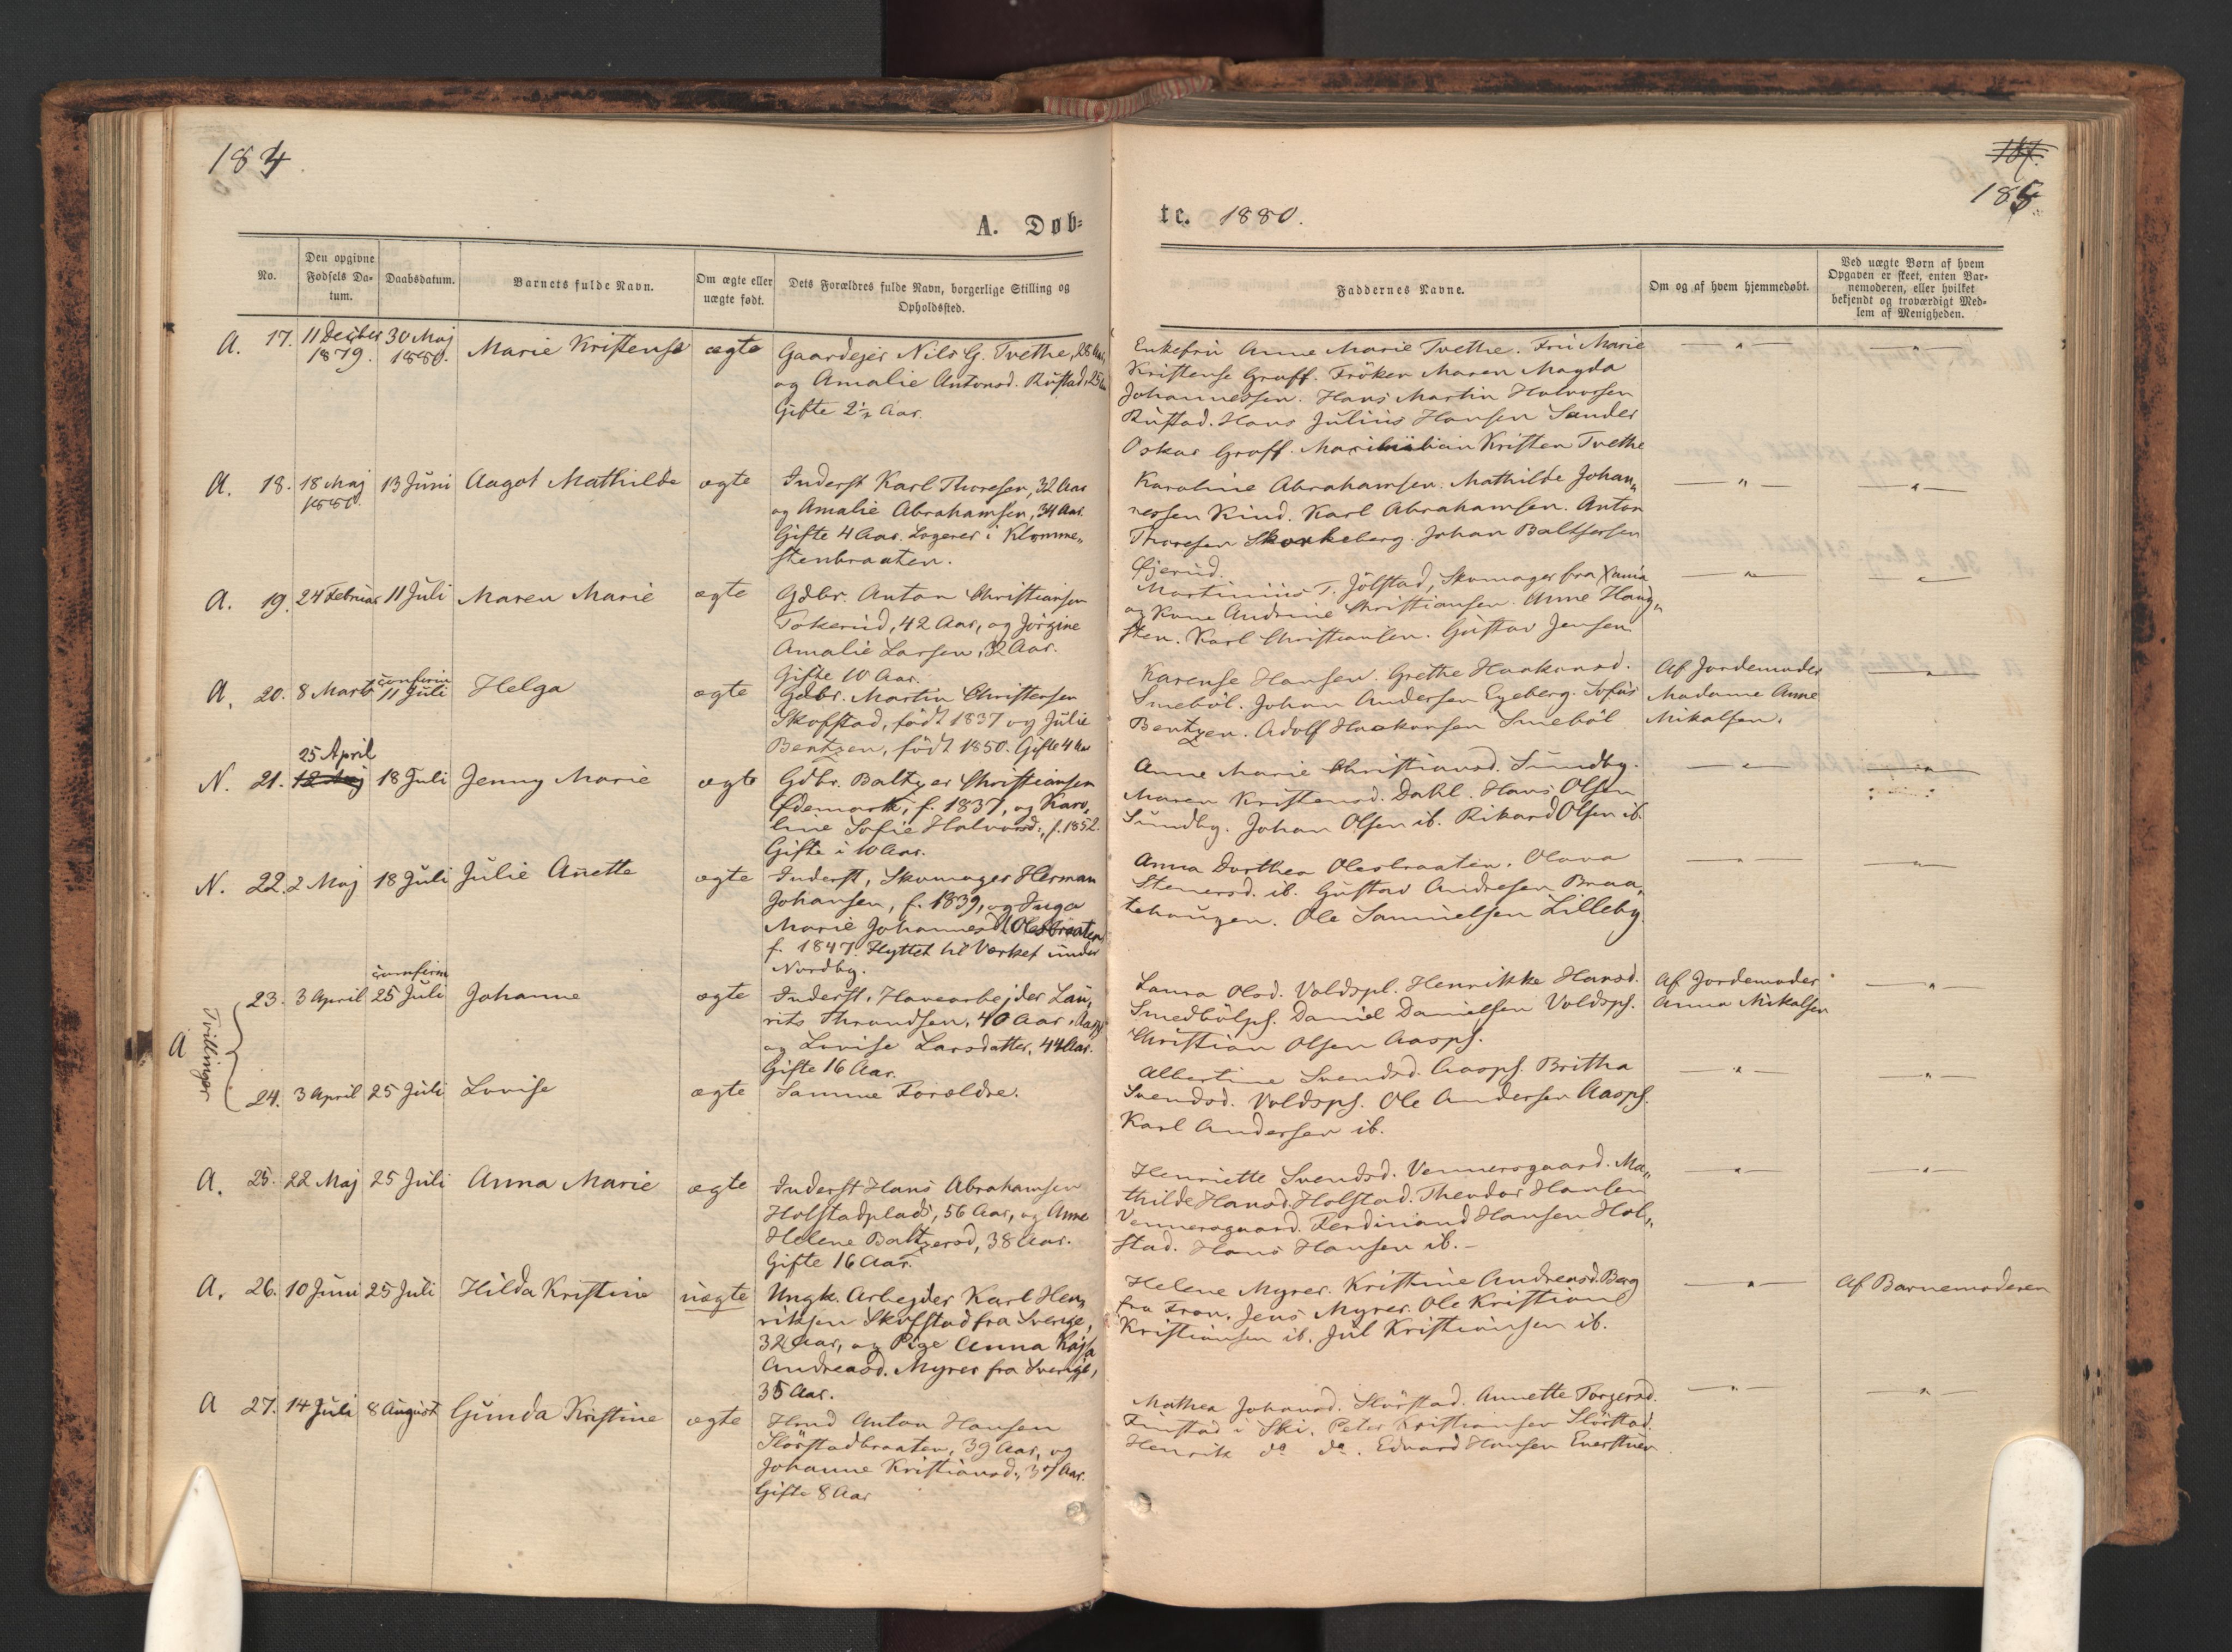 184
A. Døb-
No.
Den opgivne
Fødsels Da-
tum.
Daabsdatum.
Barnets fulde Navn.
Om ægte eller
uægte født.
Dets Forældres fulde Navn, borgerlige Stilling og
Opholdssted.
A. 17. 11 Decbber 30 Maj Marie Kristense ægte Gaardejer Nils G. Tvethe, 28 Aar,
1879. 1880. og Amalie Antonsd. Rustad, 25
Gifte 2½ Aar.
A. 18. 18 Maj 13 Juni Aagot Mathilde ægte Inderst Karl Thoresen, 32 Aar
1880. og Amalie Abrahamsen, 34 Aar.
Gifte 4 Aar. Logerer i Klomme„
stenbraaten.
A. 19. 24 Februar 11 Juli Maren Marie ægte Gdbr. Anton Christiansen
Tokerud, 42 Aar, og Jörgine
Amalie Larsen, 32 Aar.
Gifte 10 Aar.
confirm
A. 20. 8 Marts 11 Juli Helga ægte Gdbr. Martin Christensen
Skofstad, født 1837 og Julie
Bentzen, født 1850. Gifte 4 Aar
25 April
N. 21. 12 Maj 18 Juli Jenny Marie ægte Gdbr. Baltzer Christiansen
Ødemark, f. 1837, og Karo„
line Sofie Halvorsd., f. 1852.
Gifte i 10 Aar.
N. 22. 2 Maj 18 Juli Julie Anette ægte Inderst, Skomager Herman
Johansen, f. 1839, og Inga
Marie Johannesd. Olesbraaten
f. 1847. Flyttet til Værket under
Nordby.
confirm
23. 3 April 25 Juli Johanne ægte Inderst, Havearbejder Lau„
rits Throndsen, 40 Aar, Aaspl
og Lovise Larsdatter, 44 Aar.
Gifte 16 Aar.
A Tvillinger
24. 3 April 25 Juli Lovise ægte Samme Forældre.
A. 25. 22 Maj 25 Juli Anna Marie ægte Inderst Hans Abrahamsen
Holstadplads, 56 Aar, og Anne
Helene Baltzersd, 38 Aar.
Gifte 16 Aar.
A. 26. 10 Juni 25 Juli Hilda Kristine uægte Ungk. Arbejder Karl Hen„
riksen Skofstad fra Sverige,
32 Aar, og Pige Anna Kajsa
Andreasd. Myrer fra Sverige,
35 Aar.
A 27. 14 Juli 8 August Gunda Kristine ægte Hmd Anton Hansen
Slørstadbraaten, 39 Aar, og
Johanne Kristiansd., 37 Aar.
Gifte 8 Aar
185.
te. 1880.
Faddernes Navne.
Om og af hvem hjemmedøbt.
Ved uægte Børn af hvem
Opgaven er skeet, enten Bar-
nemoderen, eller hvilket
bekjendt og troværdigt Med-
lem af Menigheden.
Enkefru Anne Marie Tvethe. Fru Marie
Kristense Graff. Fröken Maren Magda
Johannessen. Hans Martin Halvorsen
Rustad. Hans Julius Hansen Sander
Oskar Graff. Maximilian Kristen Tvethe
Karoline Abrahamsen. Mathilde Johan„
nessen Kind. Karl Abrahamsen. Anton
Thoresen Skorkeberg. Johan Baltsersen
Gjerud.
Martinius T. Jölstad, Skomager fra
og Kone Andrine Christiansen. Anne Haug„
sten. Karl Christiansen. Gustav Jensen.
Karense Hansen. Grethe Haakonsd. Af Jordemoder
Smeböl. Johan Andersen Egeberg. Tofus Madame Anne
Bentzen. Adolf Haakonsen Smeböl Mikalsen.
Anne Marie Christiansd. Sundby.
Maren Kristensd. Dahl. Hans Olsen
Sundby. Johan Olsen ib. Rikard Olsen ib.
Anna Dorthea Olesbraaten. Olava
Stenersd. ib. Gustav Andresen Braa„
tehaugen. Ole Samuelsen Lilleby.
Laura Olsd. Voldspl. Henrikke Hansd. Af Jordemoder
Smedbölpl. Daniel Danielsen Voldspl. Anna Mikalsen
Christian Olsen Aaspl.
Albertine Svendsd. Aaspl. Britha
Svendsd. Voldspl. Ole Andersen Aaspl.
Karl Andersen ib.
Henriette Svendsd. Vennersgaard. Ma„
thilde Hansd. Holstad. Theodor Hansen
Vennersgaard. Ferdinand Hansen Hol„
stad. Hans Hansen ib.
Helene Myrer. Kristine Andreasd. Berg Af Barnemoderen
fra Fron. Jens Myrer. Ole Kristian
Kristiansen ib. Jul Kristiansen ib.
Mathea Johansd. Slörstad. Annette Torgersd.
Finstad i Ski. Peter Kristiansen Slörstad.
Henrik do do. Edvard Hansen